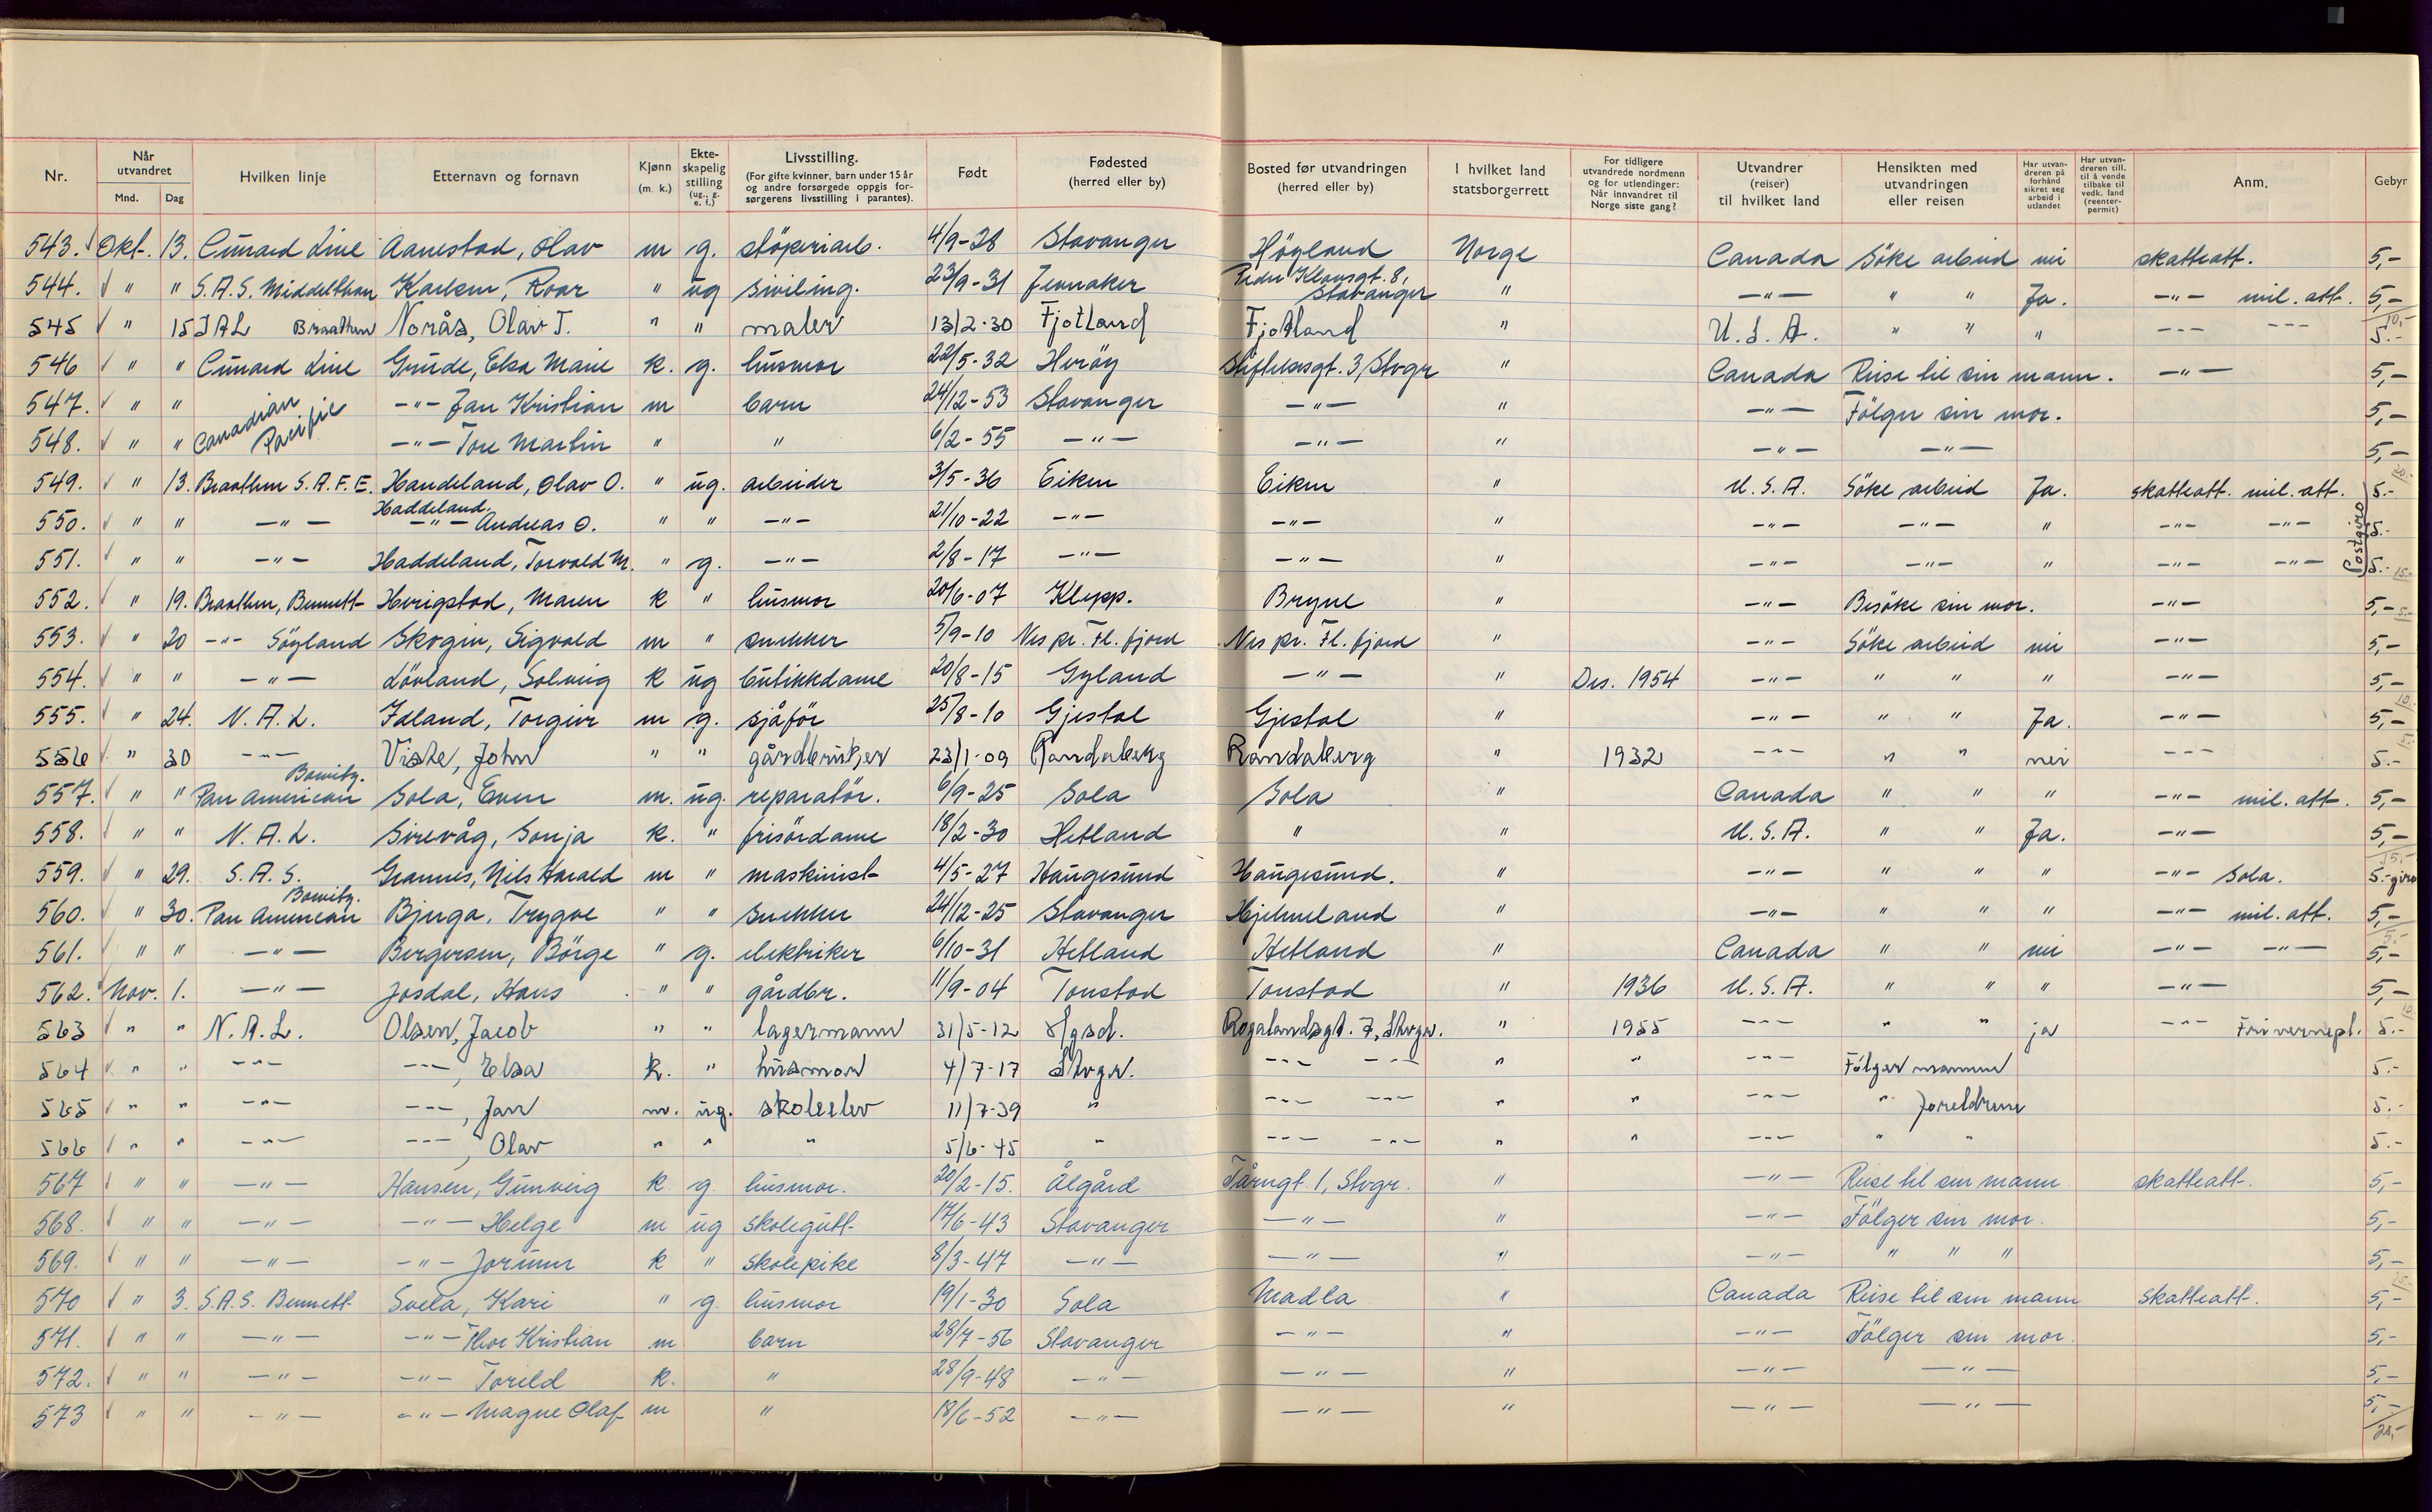 Nr. | Når utvandret Mnd. Dag | Hvilken linje | Etternavn og fornavn | Kjønn (m. k.) | Ekteskapelig stilling (ug., g. e. f.) | Livsstilling. (For gifte kvinner, barn under 15 år og andre forsørgede oppgis forsørgerens livsstilling i parantes). | Født | Fødested (herred eller by) | Bosted før utvandringen (herred eller by) | I hvilket land statsborgerrett | For tidligere utvandrede nordmenn og for utlendinger: Når innvandret til Norge siste gang? | Utvandrer (reiser) til hvilket land | Hensikten med utvandringen eller reisen | Har utvandreren på forhånd sikret seg arbeid i utlandet | Har utvandreren till. til å vende tilbake til vedk. land (reenterpermit) | Anm. | Gebyr
543. Okt. 13. Cunard Line Aanestad, Olav m g. støperiarb. 4/9-28 Stavanger Høyland Norge Canada Söke arbeid nei skatteatt. 5,-
544. " " S.A.S. Middelthon Karlsen, Roar " ug siviling. 23/9-31 Jevnaker Peder Klowsgt. 8, Stavanger " -"- " " Ja. -"- mil. att. 5,-
545 " 15 IAL Braathen Norås, Olav T. " " maler 13/2-30 Fjotland Fjotland " U.S.A. " " " -"- -"- 5.-
546 " " Cunard Line Grude, Elsa Marie k. g. husmor 22/5-32 Herøy Stiftelsesgt. 3, Stvgr " Canada Reise til sin mann. -"- 5,-
547. " " Canadian Pacific -"- Jan Kristian m barn 24/12-53 Stavanger -"- " -"- Følger sin mor. 5,-
548. " " -"- Tore Martin " " 6/2-55 -"- -"- " -"- -"- 5,-
549. " 13. Braathen S.A.F.E. Handeland, Olav O. " ug. arbeider 3/5-36 Eiken Eiken " U.S.A. Söke arbeid Ja. skatteatt. mil. att. 5.-
550. " " -"- Haddeland. -"- Andreas O. " " -"- 21/10-22 -"- -"- " -"- -"- " -"- -"- Postgiro 5.-
551. " " -"- Haddeland, Torvald M. " g. -"- 2/8-17 -"- -"- " -"- -"- " -"- -"- 5.- 15.-
552. " 19. Braathen, Bennett Herigstad, Maren k " husmor 20/6-07 Klepp. Bryne " -"- Besöke sin mor. -"- 5,-
553. " 20 -"- Söyland Skogen, Sigvald m " snekker 5/9-10 Nes pr. Fl. fjord Nes pr. Fl. fjord " -"- Söke arbeid nei -"- 5,-
554. " " -"- Lövland, Solveig k ug butikkdame 20/8-15 Gyland -"- " Des. 1954 -"- " " " -"- 5,-
555. " 24. N.A.L. Idland, Torgeir m g. sjåför 25/8-10 Gjestal Gjestal " -"- " " Ja. -"- 5,-
556 " 30 -"- Viste, John " " gårdbruker 23/1-09 Randaberg Randaberg " 1932 -"- " " nei -"- 5.-
557. " " Pan American Bowitz. Sola, Even m. ug. reparatör. 6/9-25 Sola Sola " Canada " " " -"- mil. att. 5,-
558. " " N.A.L. Sirevåg, Sonja k. " frisördame 18/2-30 Hetland " " U.S.A. " " Ja. -"- 5,-
559. " 29. S.A.S. Grannes, Nils Harald m " maskinist 4/5-27 Haugesund Haugesund. " -"- " " " -"- Sola. 5.- giro
560. " 30. Pan American Bowitz. Bjerga, Trygve " " snekker 24/12-25 Stavanger Hjelmeland " -"- " " " -"- mil. att. 5,-
561. " " -"- Bergersen, Börge " g. elektriker 6/10-31 Hetland Hetland " Canada " " nei -"- -"- 5,-
562. Nov. 1. -"- Josdal, Hans " " gårdbr. 11/9-04 Tonstad Tonstad " 1936 U.S.A. " " " -"- 5,-
563 " " N.A.L. Olsen, Jacob " " lagermann 31/5-12 Rogalandsgt. 7, Stvgr. " 1955 -"- " " ja -"- Fri vernepl. 5.-
564 " " -"- -"-, Elsa k. " husmor 4/7-17 Stvgr. -"- -"- " " -"- Følger mannen 5.-
565 " " -"- -"-, Jan m. ug. skoleelev 11/7-39 " -"- -"- " " -"- " foreldrene 5.-
566 " " -"- -"-, Olav " " " 5/6-45 " -"- -"- " " -"- " " 5.-
567 " " -"- Hansen, Gunveig k g. husmor. 20/2-15. Ålgård Tårngt. 1, Stvgr. " -"- Reise til sin mann skatteatt. 5,-
568. " " -"- -"- Helge m ug skolegutt 17/6-43 Stavanger -"- " -"- Følger sin mor. 5,-
569. " " -"- -"- Jorunn k " skolepike 8/3-47 -"- -"- " -"- " " " 5,-
570 " 3. S.A.S. Bennett Svela, Kari " g. husmor 19/1-30 Sola Madla " Canada Reise til sin mann skatteatt. 5,-
571. " " -"- -"- Thor Kristian m barn 28/7-56 Stavanger -"- " -"- Følger sin mor. 5,-
572. " " -"- -"- Torild k. " 28/9-48 -"- -"- " -"- -"- 5,-
573 " " -"- -"- Magne Olaf m " 18/6-52 -"- -"- " -"- -"- 5,-